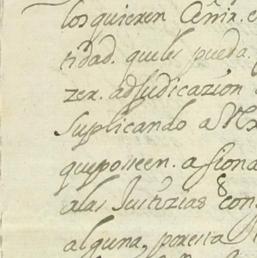 los quieren Ceñir. e
tidad. queles pueda.
zer. adjudicazion
suplicando a V
queposeen. afiona
alas Justizias con
alguna, poresta